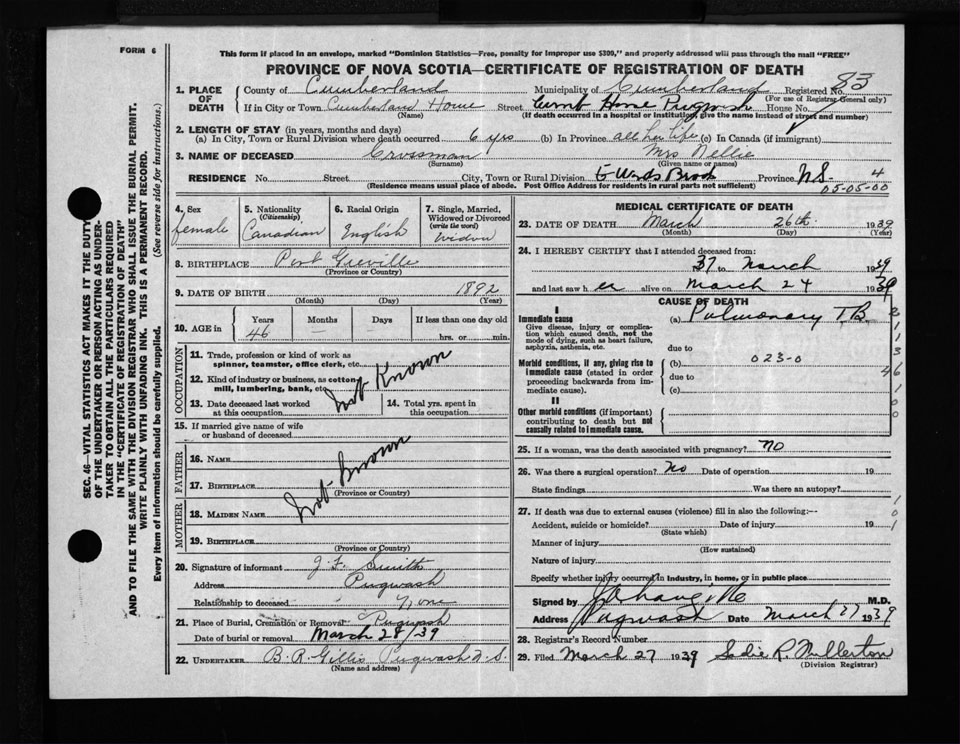 FORM 6
This form if placed in an envelope, marked "Dominion Statistics—Free, penalty for improper use $300," and properly addressed will pass through the mail "FREE"
PROVINCE OF NOVA SCOTIA—CERTIFICATE OF REGISTRATION OF DEATH
83
1. PLACE OF DEATH County of Cumberland Municipality of Cumberland Registered No.
(For use of Registrar General only)
If in City or Town Cumberland Home Street Cumb Home Pugwash House No.
(Name) (If death occurred in a hospital or institution, give the name instead of street and number)
2. LENGTH OF STAY (in years, months and days)
(a) In City, Town or Rural Division where death occurred 6 yrs (b) In Province all her life (c) In Canada (if immigrant)
3. NAME OF DECEASED Crossman Mrs Nellie
(Surname) (Given name or names)
RESIDENCE No. Street. City, Town or Rural Division Province N.S. 4
(Residence means usual place of abode. Post Office Address for residents in rural parts not sufficient) 05-05-00
4. Sex female
5. Nationality (Citizenship) Canadian
6. Racial Origin English
7. Single, Married, Widowed or Divorced (write the word) widow
8. BIRTHPLACE Port Greville
(Province or Country)
9. DATE OF BIRTH 1892
(Month) (Day) (Year)
10. AGE in Years Months Days If less than one day old
46 — — hrs. or min.
OCCUPATION
11. Trade, profession or kind of work as spinner, teamster, office clerk, etc.
12. Kind of industry or business, as cotton mill, lumbering, bank, etc.
Not Known
13. Date deceased last worked at this occupation
14. Total yrs. spent in this occupation
15. If married give name of wife or husband of deceased
FATHER
16. NAME
17. BIRTHPLACE
(Province or Country)
Not Known
MOTHER
18. MAIDEN NAME
19. BIRTHPLACE
(Province or Country)
20. Signature of informant J. F. Smith
Address Pugwash
Relationship to deceased None
21. Place of Burial, Cremation or Removal Pugwash
Date of burial or removal March 28/39
22. UNDERTAKER B. R. Gillis Pugwash N.S.
(Name and address)
MEDICAL CERTIFICATE OF DEATH
23. DATE OF DEATH March 26th 1939
(Month) (Day) (Year)
24. I HEREBY CERTIFY that I attended deceased from:
37 to March 1939
and last saw her alive on March 24 1939
CAUSE OF DEATH
I
Immediate cause (a) Pulmonary T.B.
Give disease, injury or complication which caused death, not the mode of dying, such as heart failure, asphyxia, asthenia, etc.
due to
Morbid conditions, if any, giving rise to immediate cause (stated in order proceeding backwards from immediate cause).
(b) 023-0
due to
(c)
II
Other morbid conditions (if important) contributing to death but not causally related to immediate cause.
25. If a woman, was the death associated with pregnancy? No
26. Was there a surgical operation? No Date of operation 19
State findings Was there an autopsy?
27. If death was due to external causes (violence) fill in also the following:—
Accident, suicide or homicide? Date of injury 19
(State which)
Manner of injury
(How sustained)
Nature of injury
Specify whether injury occurred in industry, in home, or in public place
Signed by M.D.
Address Pugwash Date March 27 1939
28. Registrar's Record Number
29. Filed March 27 1939 Sadie R. Fullerton
(Division Registrar)
SEC. 46—VITAL STATISTICS ACT MAKES IT THE DUTY
OF THE UNDERTAKER OR PERSON ACTING AS UNDER-
TAKER TO OBTAIN ALL THE PARTICULARS REQUIRED
IN THE "CERTIFICATE OF REGISTRATION OF DEATH"
AND TO FILE THE SAME WITH THE DIVISION REGISTRAR WHO SHALL ISSUE THE BURIAL PERMIT.
WRITE PLAINLY WITH UNFADING INK. THIS IS A PERMANENT RECORD.
Every item of information should be carefully supplied. (See reverse side for instructions.)